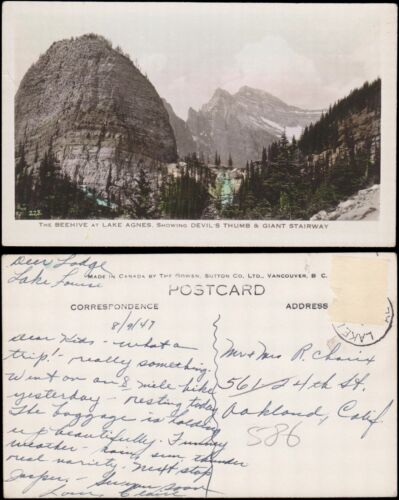 222
THE BEEHIVE AT LAKE AGNES, SHOWING DEVIL'S THUMB & GIANT STAIRWAY
Deer Lodge
Lake Louise
MADE IN CANADA BY THE GOWEN, SUTTON CO. LTD., VANCOUVER, B. C.
POSTCARD
CORRESPONDENCE
ADDRESS
LAKE
8/9/47
Dear Kids - what a
trip! - really something.
Went on an 8 mile hike
yesterday - resting today
The baggage is holding
up beautifully. Funny
weather - rain, sun, thunder
real variety. Next stop
Jasper, - soon
Love Claire
Mr & Mrs R.
561 24th St.
Oakland, Calif.
586